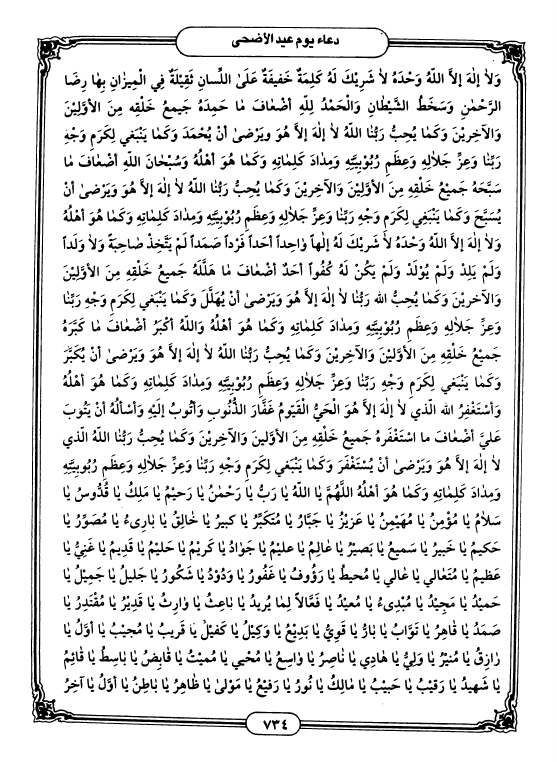 دعاء يوم عيد الأضحى
وَلاٰ إِلٰهَ إِلاَّ اللَّهُ وَحْدَهُ لاٰ شَرِيكَ لَهُ كَلِمَةٌ خَفِيفَةٌ عَلَىٰ اللِّسانِ ثَقِيلَةٌ فِي الْمِيزانِ بِهٰا رِضَا
الرَّحْمٰنِ وَسَخَطُ الشَّيْطٰانِ وَالْحَمْدُ لِلّٰهِ أَضْعٰافَ مٰا حَمِدَهُ جَمِيعُ خَلْقِهِ مِنَ الأوَّلِيْنَ
وَالآخِرِيْنَ وَكَمٰا يُحِبُّ رَبُّنٰا اللّهُ لاٰ إِلٰهَ إِلاَّ هُوَ وَيَرْضىٰ أَنْ يُحْمَدَ وَكَمٰا يَنْبَغي لِكَرَمِ وَجْهِ
رَبِّنٰا وَعِزِّ جَلاٰلِهِ وَعِظَمِ رُبُوبِيَّتِهِ وَمِدٰادَ كَلِمٰاتِهِ وَكَمٰا هُوَ أَهْلُهُ وَسُبْحٰانَ اللّهِ أَضْعٰافَ مٰا
سَبَّحَهُ جَمِيعُ خَلْقِهِ مِنَ الأوَّلِيْنَ وَالآخِرِيْنَ وَكَمٰا يُحِبُّ رَبُّنٰا اللّهُ لاٰ إِلٰهَ إِلاَّ هُوَ وَيَرْضىٰ أَنْ
يُسَبَّحَ وَكَمٰا يَنْبَغي لِكَرَمِ وَجْهِ رَبِّنٰا وَعِزِّ جَلاٰلِهِ وَعِظَمِ رُبُوبِيَّتِهِ وَمِدٰادَ كَلِمٰاتِهِ وَكَمٰا هُوَ أَهْلُهُ
وَلاٰ إِلٰهَ إِلاَّ اللّهُ وَحْدَهُ لاٰ شَرِيكَ لَهُ إِلٰهاً وٰاحِداً أَحَداً فَرْداً صَمَداً لَمْ يَتَّخِذْ صٰاحِبَةً وَلاٰ وَلَداً
وَلَمْ يَلِدْ وَلَمْ يُوْلَدْ وَلَمْ يَكُنْ لَهُ كُفُواً أَحَدٌ أَضْعٰافَ مٰا هَلَّلَهُ جَمِيعُ خَلْقِهِ مِنَ الأوَّلِيْنَ
وَالآخِرِيْنَ وَكَمٰا يُحِبُّ الله رَبُّنٰا لاٰ إِلٰهَ إِلاَّ هُوَ وَيَرْضىٰ أَنْ يُهَلَّلَ وَكَمٰا يَنْبَغي لِكَرَمِ وَجْهِ رَبِّنٰا
وَعِزِّ جَلاٰلِهِ وَعِظَمِ رُبُوبِيَّتِهِ وَمِدٰادَ كَلِمٰاتِهِ وَكَمٰا هُوَ أَهْلُهُ وَاللّهُ أَكْبَرُ أَضْعٰافَ مٰا كَبَّرَهُ
جَمِيْعُ خَلْقِهِ مِنَ الأوَّلِيْنَ وَالآخِرِيْنَ وَكَمٰا يُحِبُّ رَبُّنٰا اللّهُ لاٰ إِلٰهَ إِلاَّ هُوَ وَيَرْضىٰ أَنْ يُكَبَّرَ
وَكَمٰا يَنْبَغي لِكَرَمِ وَجْهِ رَبِّنٰا وَعِزِّ جَلاٰلِهِ وَعِظَمِ رُبُوبِيَّتِهِ وَمِدٰادَ كَلِمٰاتِهِ وَكَمٰا هُوَ أَهْلُهُ
وَأَسْتَغْفِرُ الله الَّذي لاٰ إِلٰهَ إِلاَّ هُوَ الْحَيُّ الْقَيُّومُ غَفّٰارَ الذُّنُوبِ وَأَتُوبُ إِلَيْهِ وَأَسْأَلُهُ أَنْ يَتُوبَ
عَلَيَّ أَضْعٰافَ ما اسْتَغْفَرَهُ جَمِيعُ خَلْقِهِ مِنَ الأوَّلِينَ وَالآخِرِيْنَ وَكَمٰا يُحِبُّ رَبُّنٰا اللّهُ الَّذي
لاٰ إِلٰهَ إِلاَّ هُوَ وَيَرْضىٰ أَنْ يُسْتَغْفَرَ وَكَمٰا يَنْبَغي لِكَرَمِ وَجْهِ رَبِّنٰا وَعِزِّ جَلاٰلِهِ وَعِظَمِ رُبُوبِيَّتِهِ
وَمِدٰادَ كَلِمٰاتِهِ وَكَمٰا هُوَ أَهْلُهُ اللَّهُمَّ يٰا اللّهُ يٰا رَبُّ يٰا رَحْمٰنُ يٰا رَحِيْمُ يٰا مَلِكُ يٰا قُدُّوسُ يٰا
سَلاٰمُ يٰا مُؤْمِنُ يٰا مُهَيْمِنُ يٰا عَزِيْزُ يٰا جَبّٰارُ يٰا مُتَكَبِّرُ يٰا كبيرُ يٰا خٰالِقُ يٰا بٰارِىءُ يٰا مُصَوِّرُ يٰا
حَكيمُ يٰا خَبيرُ يٰا سَميعُ يٰا بَصيْرُ يٰا عٰالِمُ يٰا عليْمُ يٰا جَوٰادُ يٰا كَريْمُ يٰا حَلِيْمُ يٰا قَديمُ يٰا غَنِيُّ يٰا
عَظيمُ يٰا مُتَعٰالي يٰا عٰالي يٰا مُحيطُ يٰا رَؤُوفُ يٰا غَفُورُ يٰا وَدُوْدُ يٰا شَكُورُ يٰا جَليلُ يٰا جَميْلُ يٰا
حَميْدُ يٰا مَجيْدُ يٰا مُبْدِىءُ يٰا مُعيْدُ يٰا فَعّٰالاً لِمٰا يُريدُ يٰا بٰاعِثُ يٰا وٰارِثُ يٰا قَديْرُ يٰا مُقْتَدِرُ يٰا
صَمَدُ يٰا قٰاهِرُ يٰا تَوّٰابُ يٰا بٰارُّ يٰا قَوِيُّ يٰا بَدِيْعُ يٰا وَكِيْلُ يٰا كَفيْلُ يٰا قَريبُ يٰا مُجيْبُ يٰا أَوَّلُ يٰا
رٰازِقُ يٰا مُنيْرُ يٰا وَلِيُّ يٰا هٰادي يٰا نٰاصِرُ يٰا وٰاسِعُ يٰا مُحْيي يٰا مُميْتُ يٰا قٰابِضُ يٰا بٰاسِطُ يٰا قٰائِمُ
يٰا شَهيدُ يٰا رَقيْبُ يٰا حَبيْبُ يٰا مٰالِكُ يٰا نُورُ يٰا رَفيْعُ يٰا مَوْلىٰ يٰا ظٰاهِرُ يٰا بٰاطِنُ يٰا أَوَّلُ يٰا آخِرُ
٧٣٤